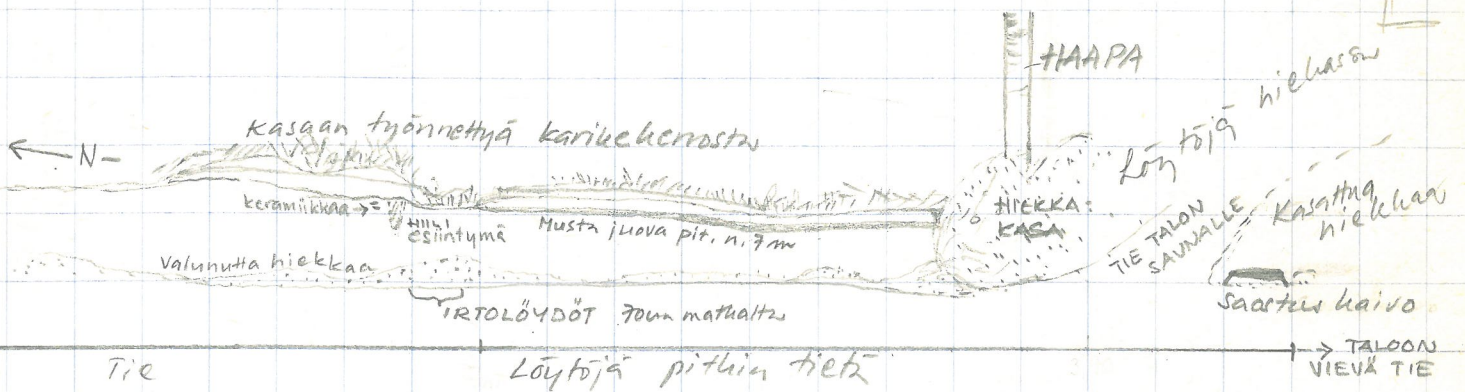 HAAPA
Löytöjä hiekassa
Kasaan työnnettyä karikekerrosta
← N -
keramiikkaa →
HIILI
esiintymä
Musta juova pit. n. 7 m
HIEKKA
KASA
TIE TALON
SAUNALLE
Kasattua
hiekkaa
Valunutta hiekkaa
Saostuskaivo
IRTOLÖYDÖT matkalta
Tie
Löytöjä pitkin tietä
→ TALOON
VIEVÄ TIE